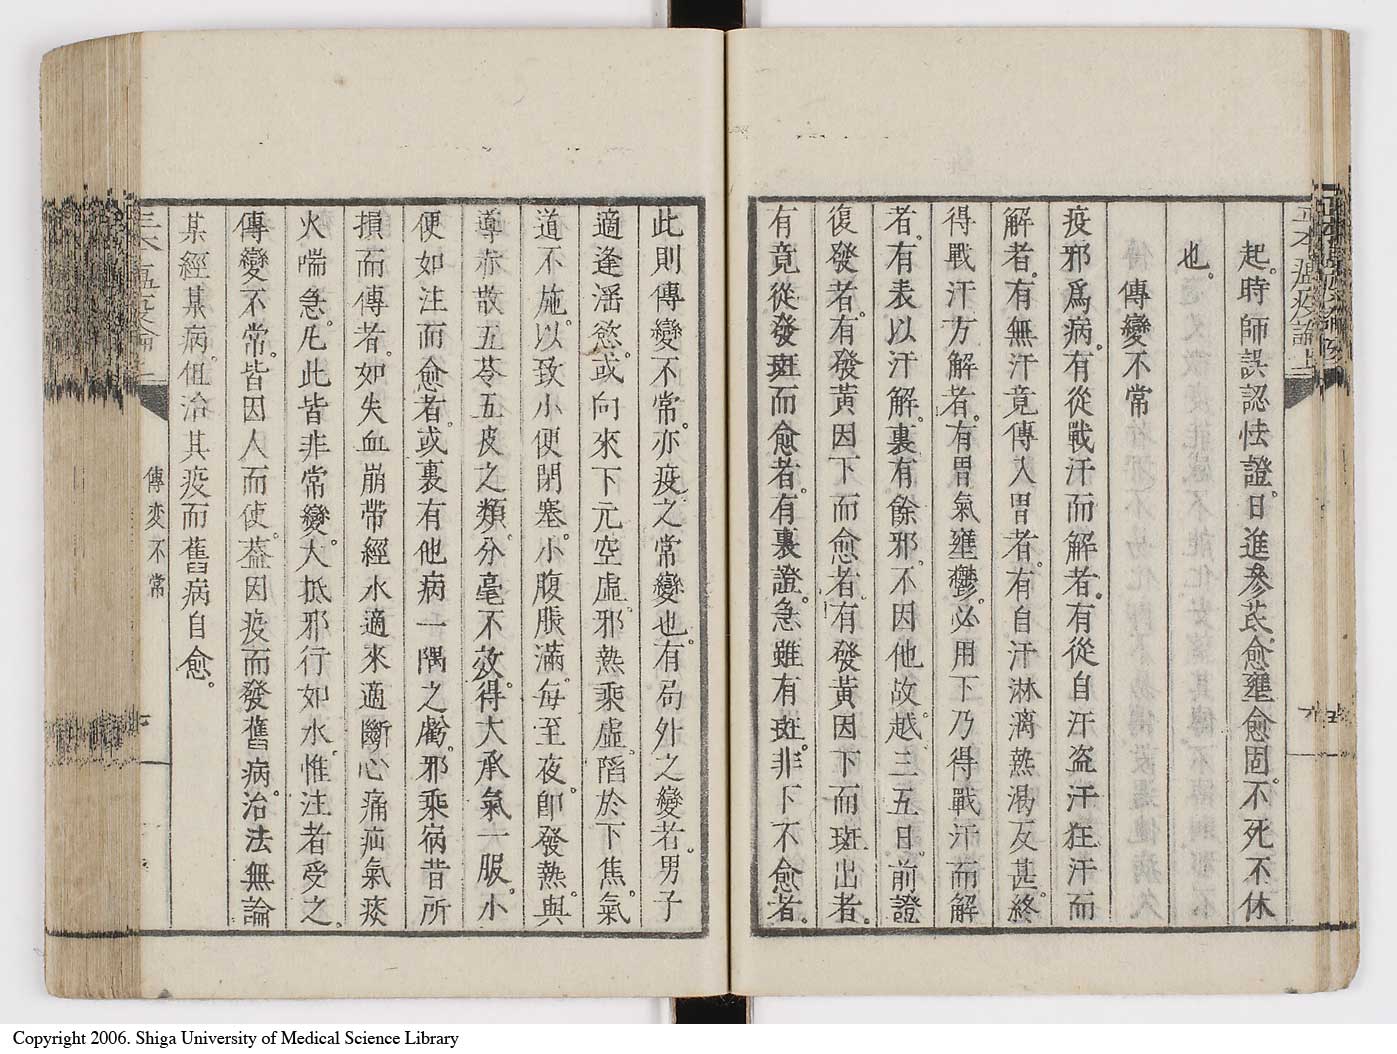 起。時師誤認怯證。日進參芪。愈壅愈固。不死不休
也。
傳變不常
疫邪爲病。有從戰汗而解者。有從自汗盗汗狂汗而
解者。有無汗竟傳入胃者。有自汗淋漓熱渴反甚。終
得戰汗方解者。有胃氣壅鬱。必用下乃得戰汗而解
者。有表以汗解。裏有餘邪。不因他故。越三五日。前證
復發者。有發黃因下而愈者。有發黃因下而斑出者。
有竟從發斑而愈者。有裏證急。雖有斑。非下不愈者。
此則傳變不常。亦疫之常變也。有局外之變者。男子
適逢滛慾。或向來下元空虛。邪熱乘虛。陷於下焦。氣
道不施。以致小便閉塞。小腹脹滿。每至夜。卽發熱。與
導赤散五苓五皮之類。分毫不效。得大承氣一服。小
便如注而愈者。或裏有他病一隅之虧。邪乘病昔所
損而傳者。如失血崩帶經水適來適斷心痛疝氣痰
火喘急。凡此皆非常變。大抵邪行如水。惟注者受之。
傳變不常。皆因人而使。葢因疫而發舊病。治法無論
某經某病。但治其疫而舊病自愈。
傳変不常
正本瘟疫論 上
Copyright 2006. Shiga University of Medical Science Library